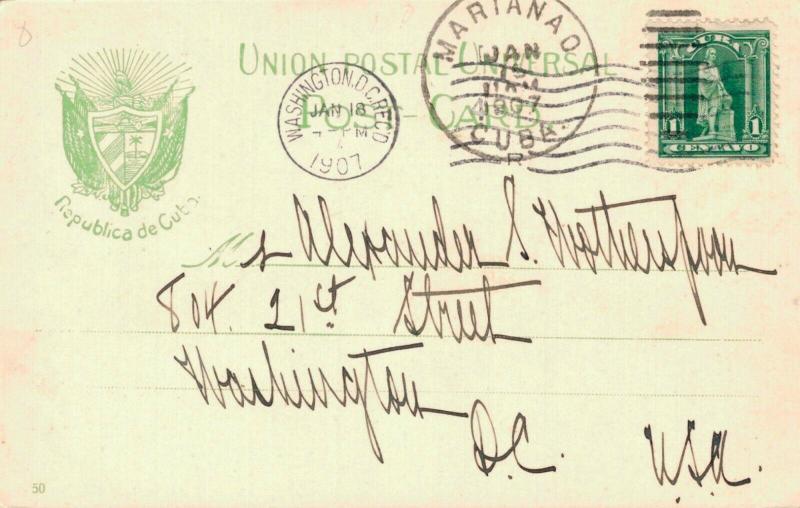 8
UNION POSTAL UNIVERSAL
POST-CARD.
Republica de Cuba.
WASHINGTON, D.C. REC'D
JAN 18
PM
1907
MARIANAO.
JAN
1907
CUBA.
R
CUBA
1 1
CENTAVO
Mr Alexander S. Wotherspoon
804. 21st Street
Washington
D.C. U.S.A.
50